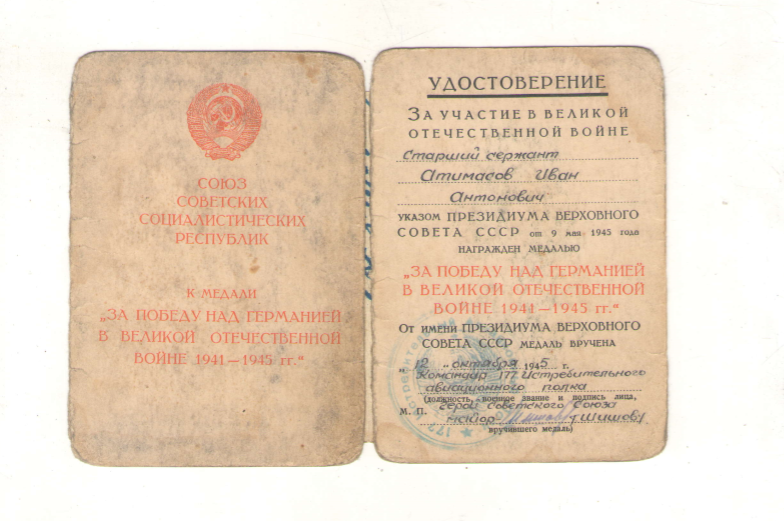 СОЮЗ
СОВЕТСКИХ
СОЦИАЛИСТИЧЕСКИХ
РЕСПУБЛИК
К МЕДАЛИ
„ЗА ПОБЕДУ НАД ГЕРМАНИЕЙ
В ВЕЛИКОЙ ОТЕЧЕСТВЕННОЙ
ВОЙНЕ 1941—1945 гг.“
УДОСТОВЕРЕНИЕ
ЗА УЧАСТИЕ В ВЕЛИКОЙ
ОТЕЧЕСТВЕННОЙ ВОЙНЕ
Старший сержант
Атимасов Иван
Антонович
УКАЗОМ ПРЕЗИДИУМА ВЕРХОВНОГО
СОВЕТА СССР от 9 мая 1945 года
НАГРАЖДЕН МЕДАЛЬЮ
„ЗА ПОБЕДУ НАД ГЕРМАНИЕЙ
В ВЕЛИКОЙ ОТЕЧЕСТВЕННОЙ
ВОЙНЕ 1941—1945 гг.“
ОТ ИМЕНИ ПРЕЗИДИУМА ВЕРХОВНОГО
СОВЕТА СССР МЕДАЛЬ ВРУЧЕНА
„12 „ октября 1945 г.
Командир 177 Истребительного
авиационного полка
(должность, военное звание и подпись лица,
М. П. герой Советского Союза
майор /Шишов/
вручившего медаль)
177